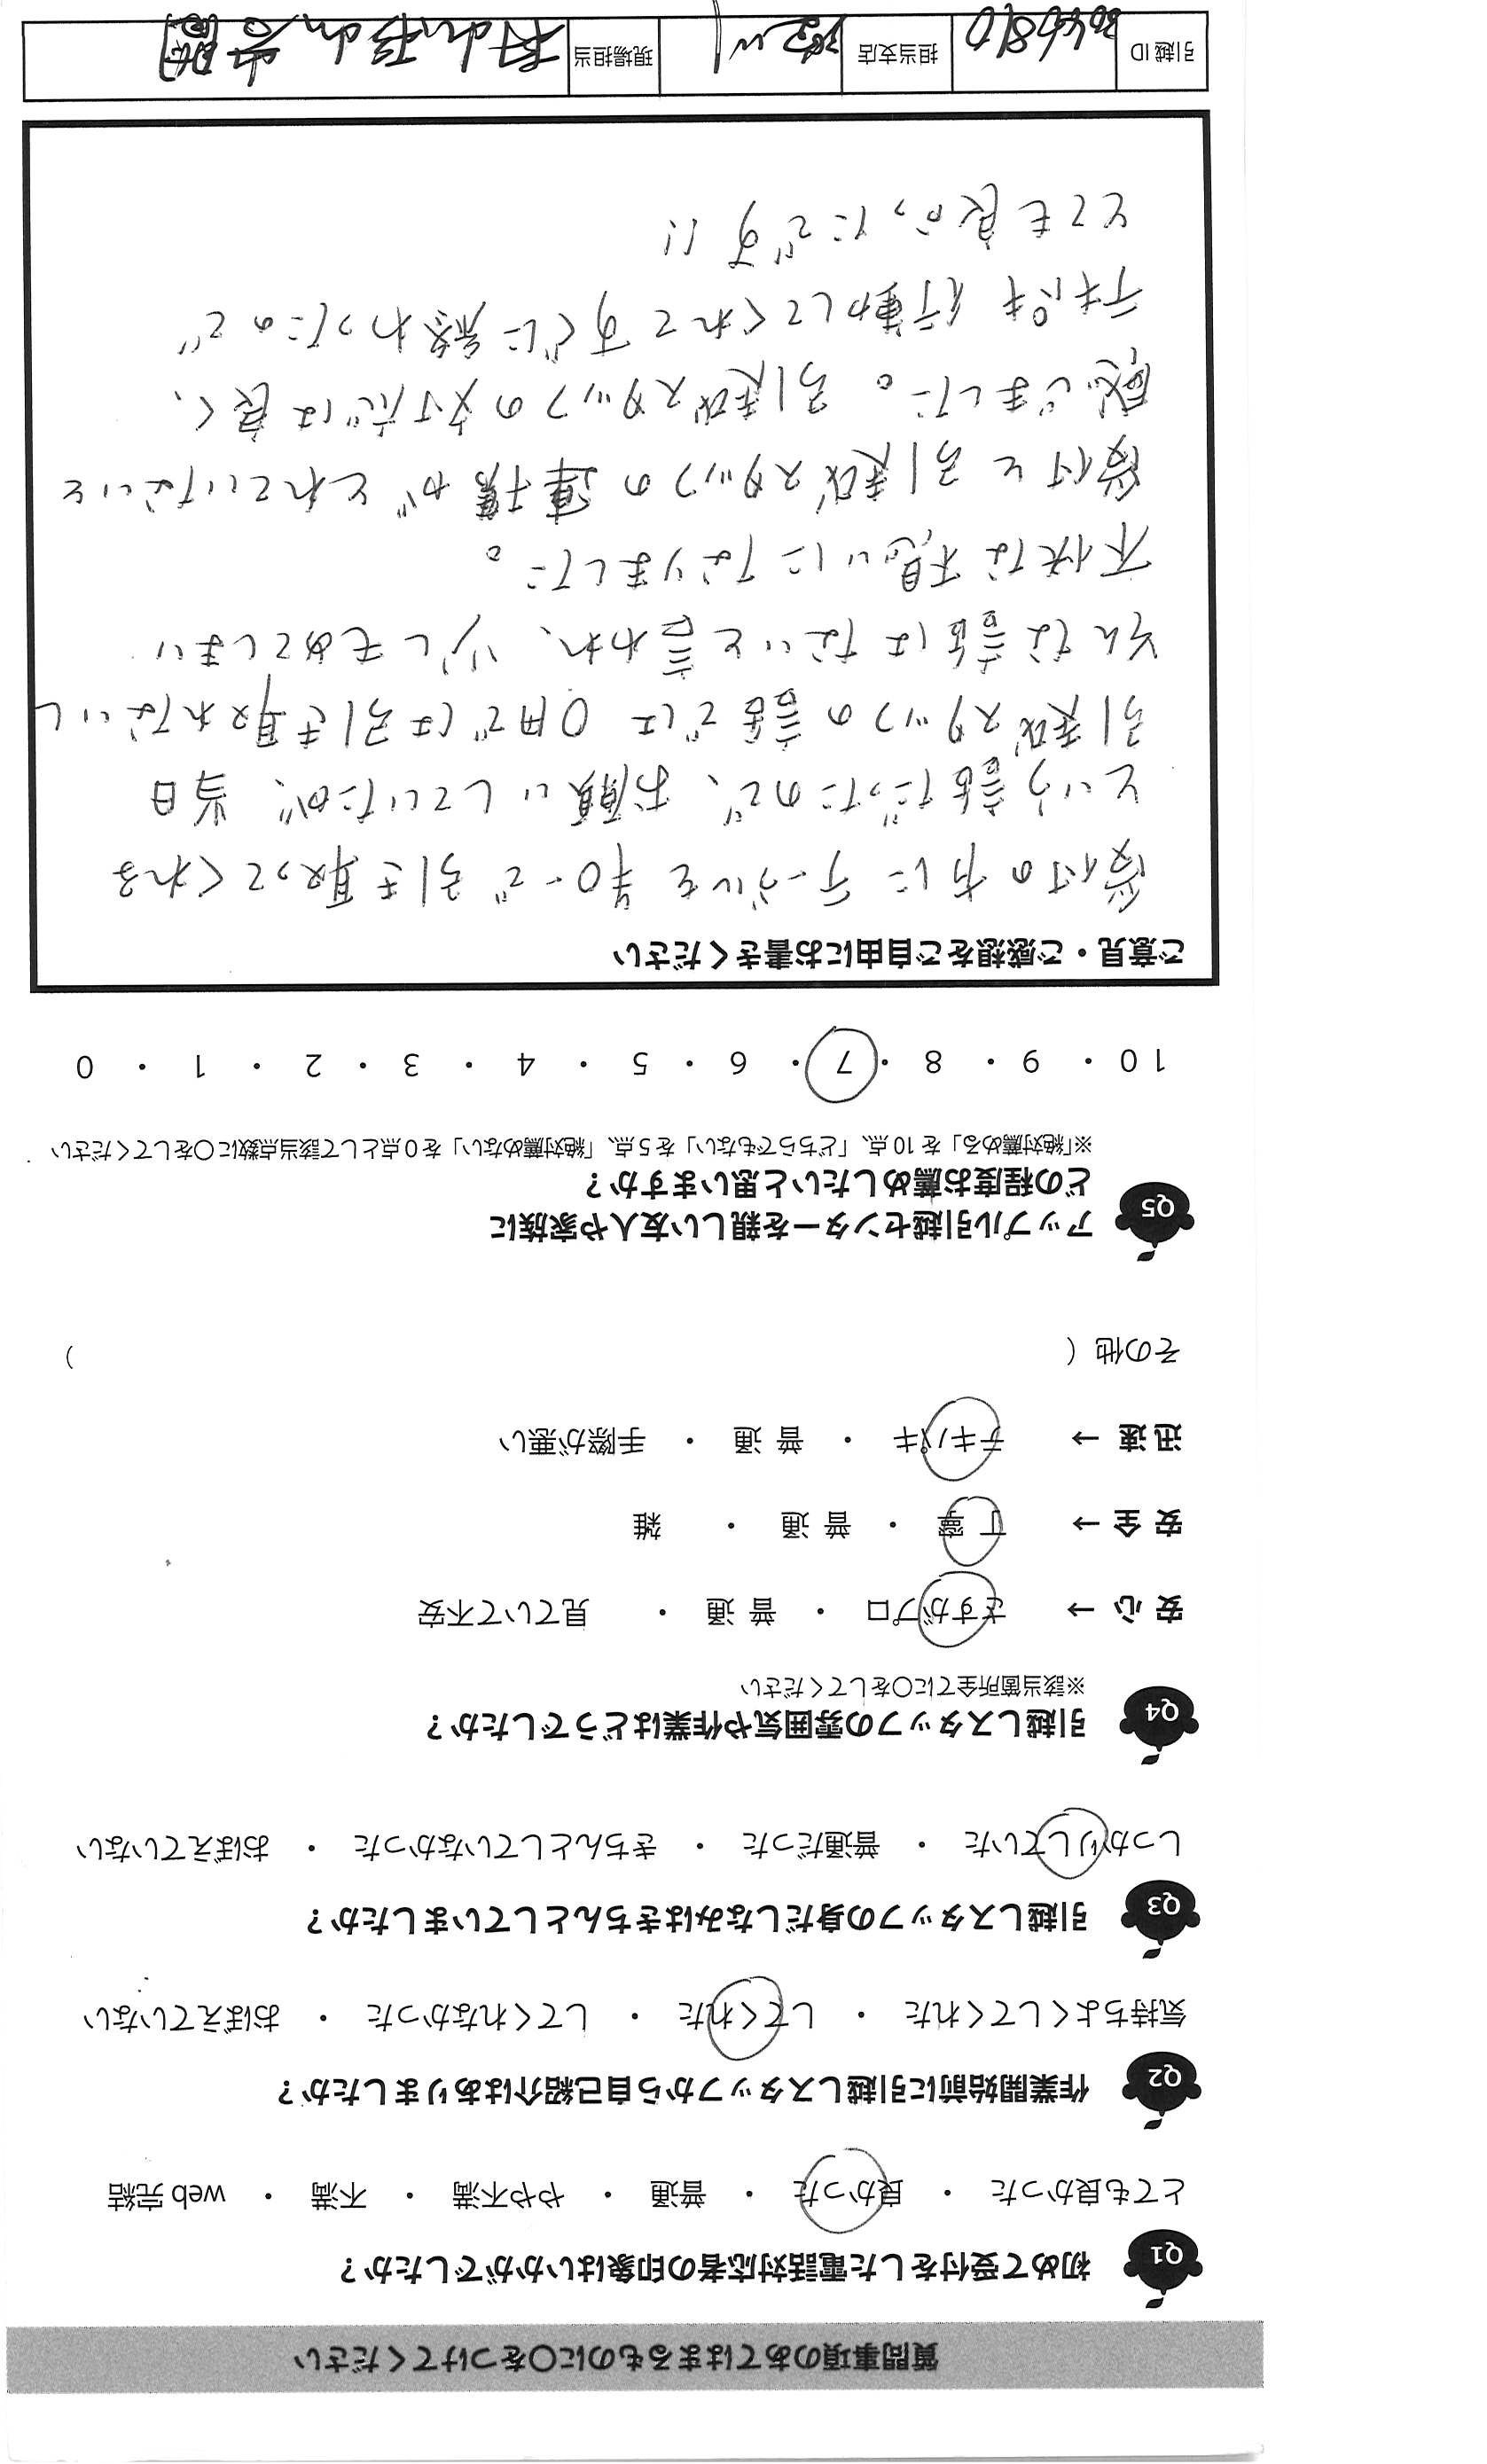 質問事項のあてはまるものに○をつけてください
Q1 初めて受付をした電話対応者の印象はいかがでしたか？
とても良かった ・ 良かった ・ 普通 ・ やや不満 ・ 不満 ・ web 完結
Q2 作業開始前に引越しスタッフから自己紹介はありましたか？
気持ちよくしてくれた ・ してくれた ・ してくれなかった ・ おぼえていない
Q3 引越しスタッフの身だしなみはきちんとしていましたか？
しっかりしていた ・ 普通だった ・ きちんとしていなかった ・ おぼえていない
Q4 引越しスタッフの雰囲気や作業はどうでしたか？
※該当箇所全てに○をしてください
安心 → さすがプロ ・ 普通 ・ 見ていて不安
安全 → 丁寧 ・ 普通 ・ 雑
迅速 → テキパキ ・ 普通 ・ 手際が悪い
その他（ ）
Q5 アップル引越センターを親しい友人や家族に
どの程度お薦めしたいと思いますか？
※「絶対薦める」を 10 点、「どちらでもない」を 5 点、「絶対薦めない」を 0 点として該当点数に○をしてください
10 ・ 9 ・ 8 ・ 7 ・ 6 ・ 5 ・ 4 ・ 3 ・ 2 ・ 1 ・ 0
ご意見・ご感想をご自由にお書きください
受付の方に テーブルを 半0ーで 引き取ってくれる
という話だったので、お願いしていたが、当日
引越スタッフの話では 0円では引き取れないし
そんな話はないと言われ、少しもめてしまい
不快な思いになりました。
受付と引越スタッフの連携がとれていないと
感じました。引越スタッフの対応は良く、
テキパキ行動してくれてすぐに終わったので
とても良かったです!!
引越 ID
担当支店
現場担当